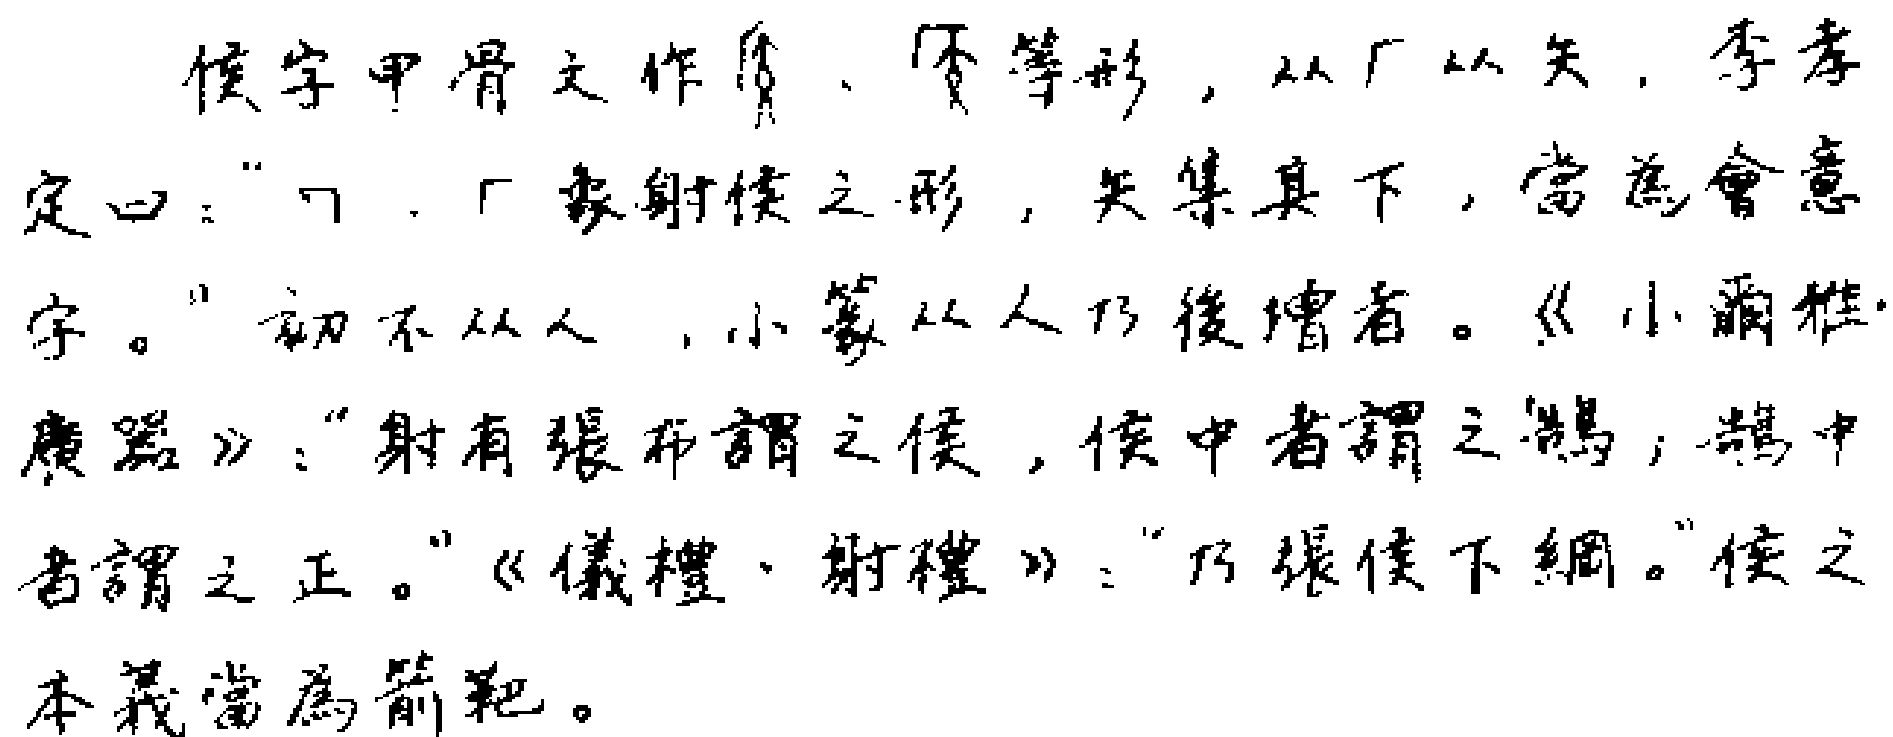 侯字甲骨文作、等形，从厂从矢．李孝
定曰：“㇕．厂象射侯之形，矢集其下，當為會意
字。”初不从人，小篆从人乃後增者。《小爾雅·
廣器》：“射有張布謂之侯，侯中者謂之鵠；鵠中
者謂之正。”《儀禮·射禮》：“乃張侯下綱。”侯之
本義當為箭靶。